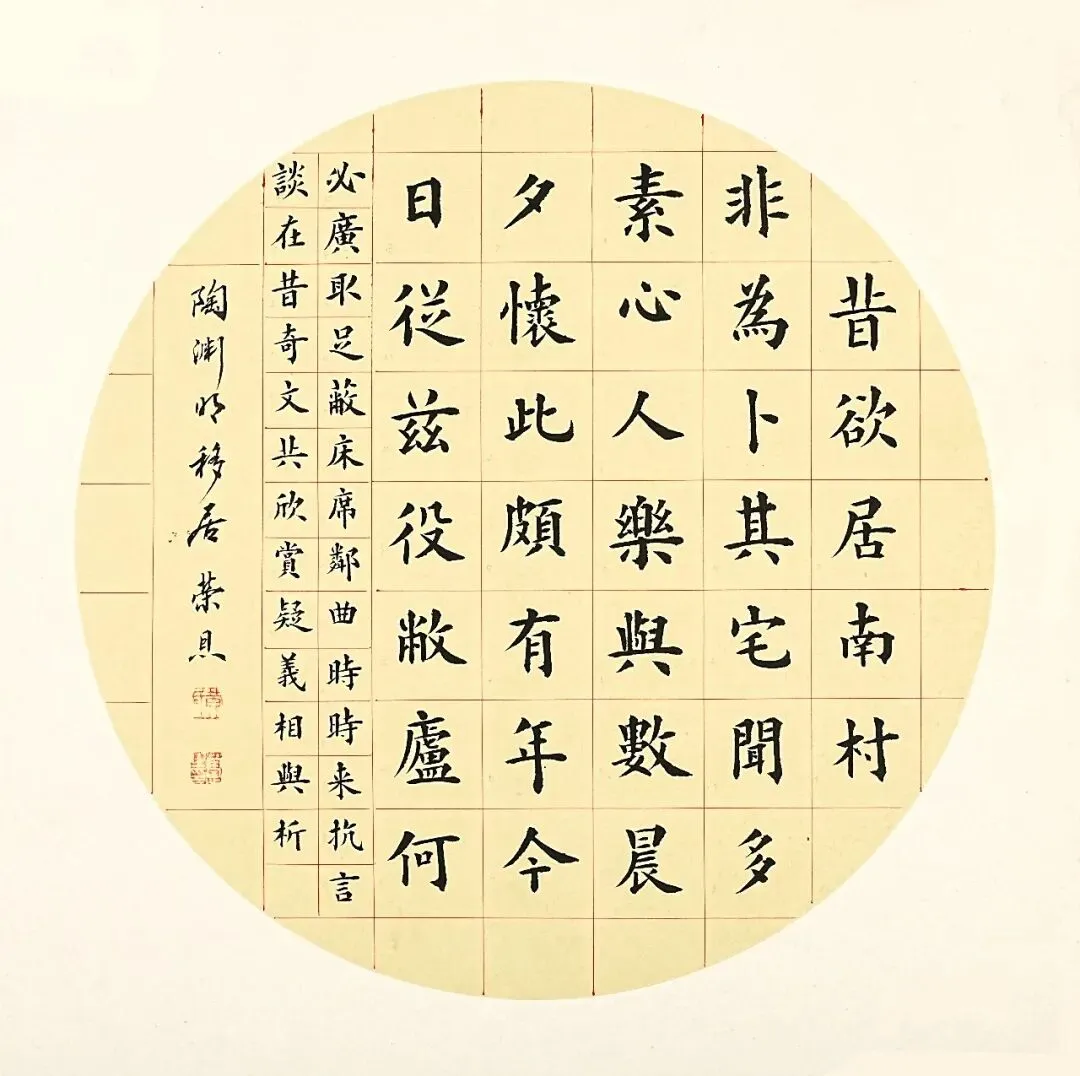 昔欲居南村
非為卜其宅聞多
素心人樂與數晨
夕懷此頗有年今
日從茲役敝廬何
必廣取足蔽床席鄰曲時時来抗言
談在昔奇文共欣賞疑義相與析
陶渊明移居 荣